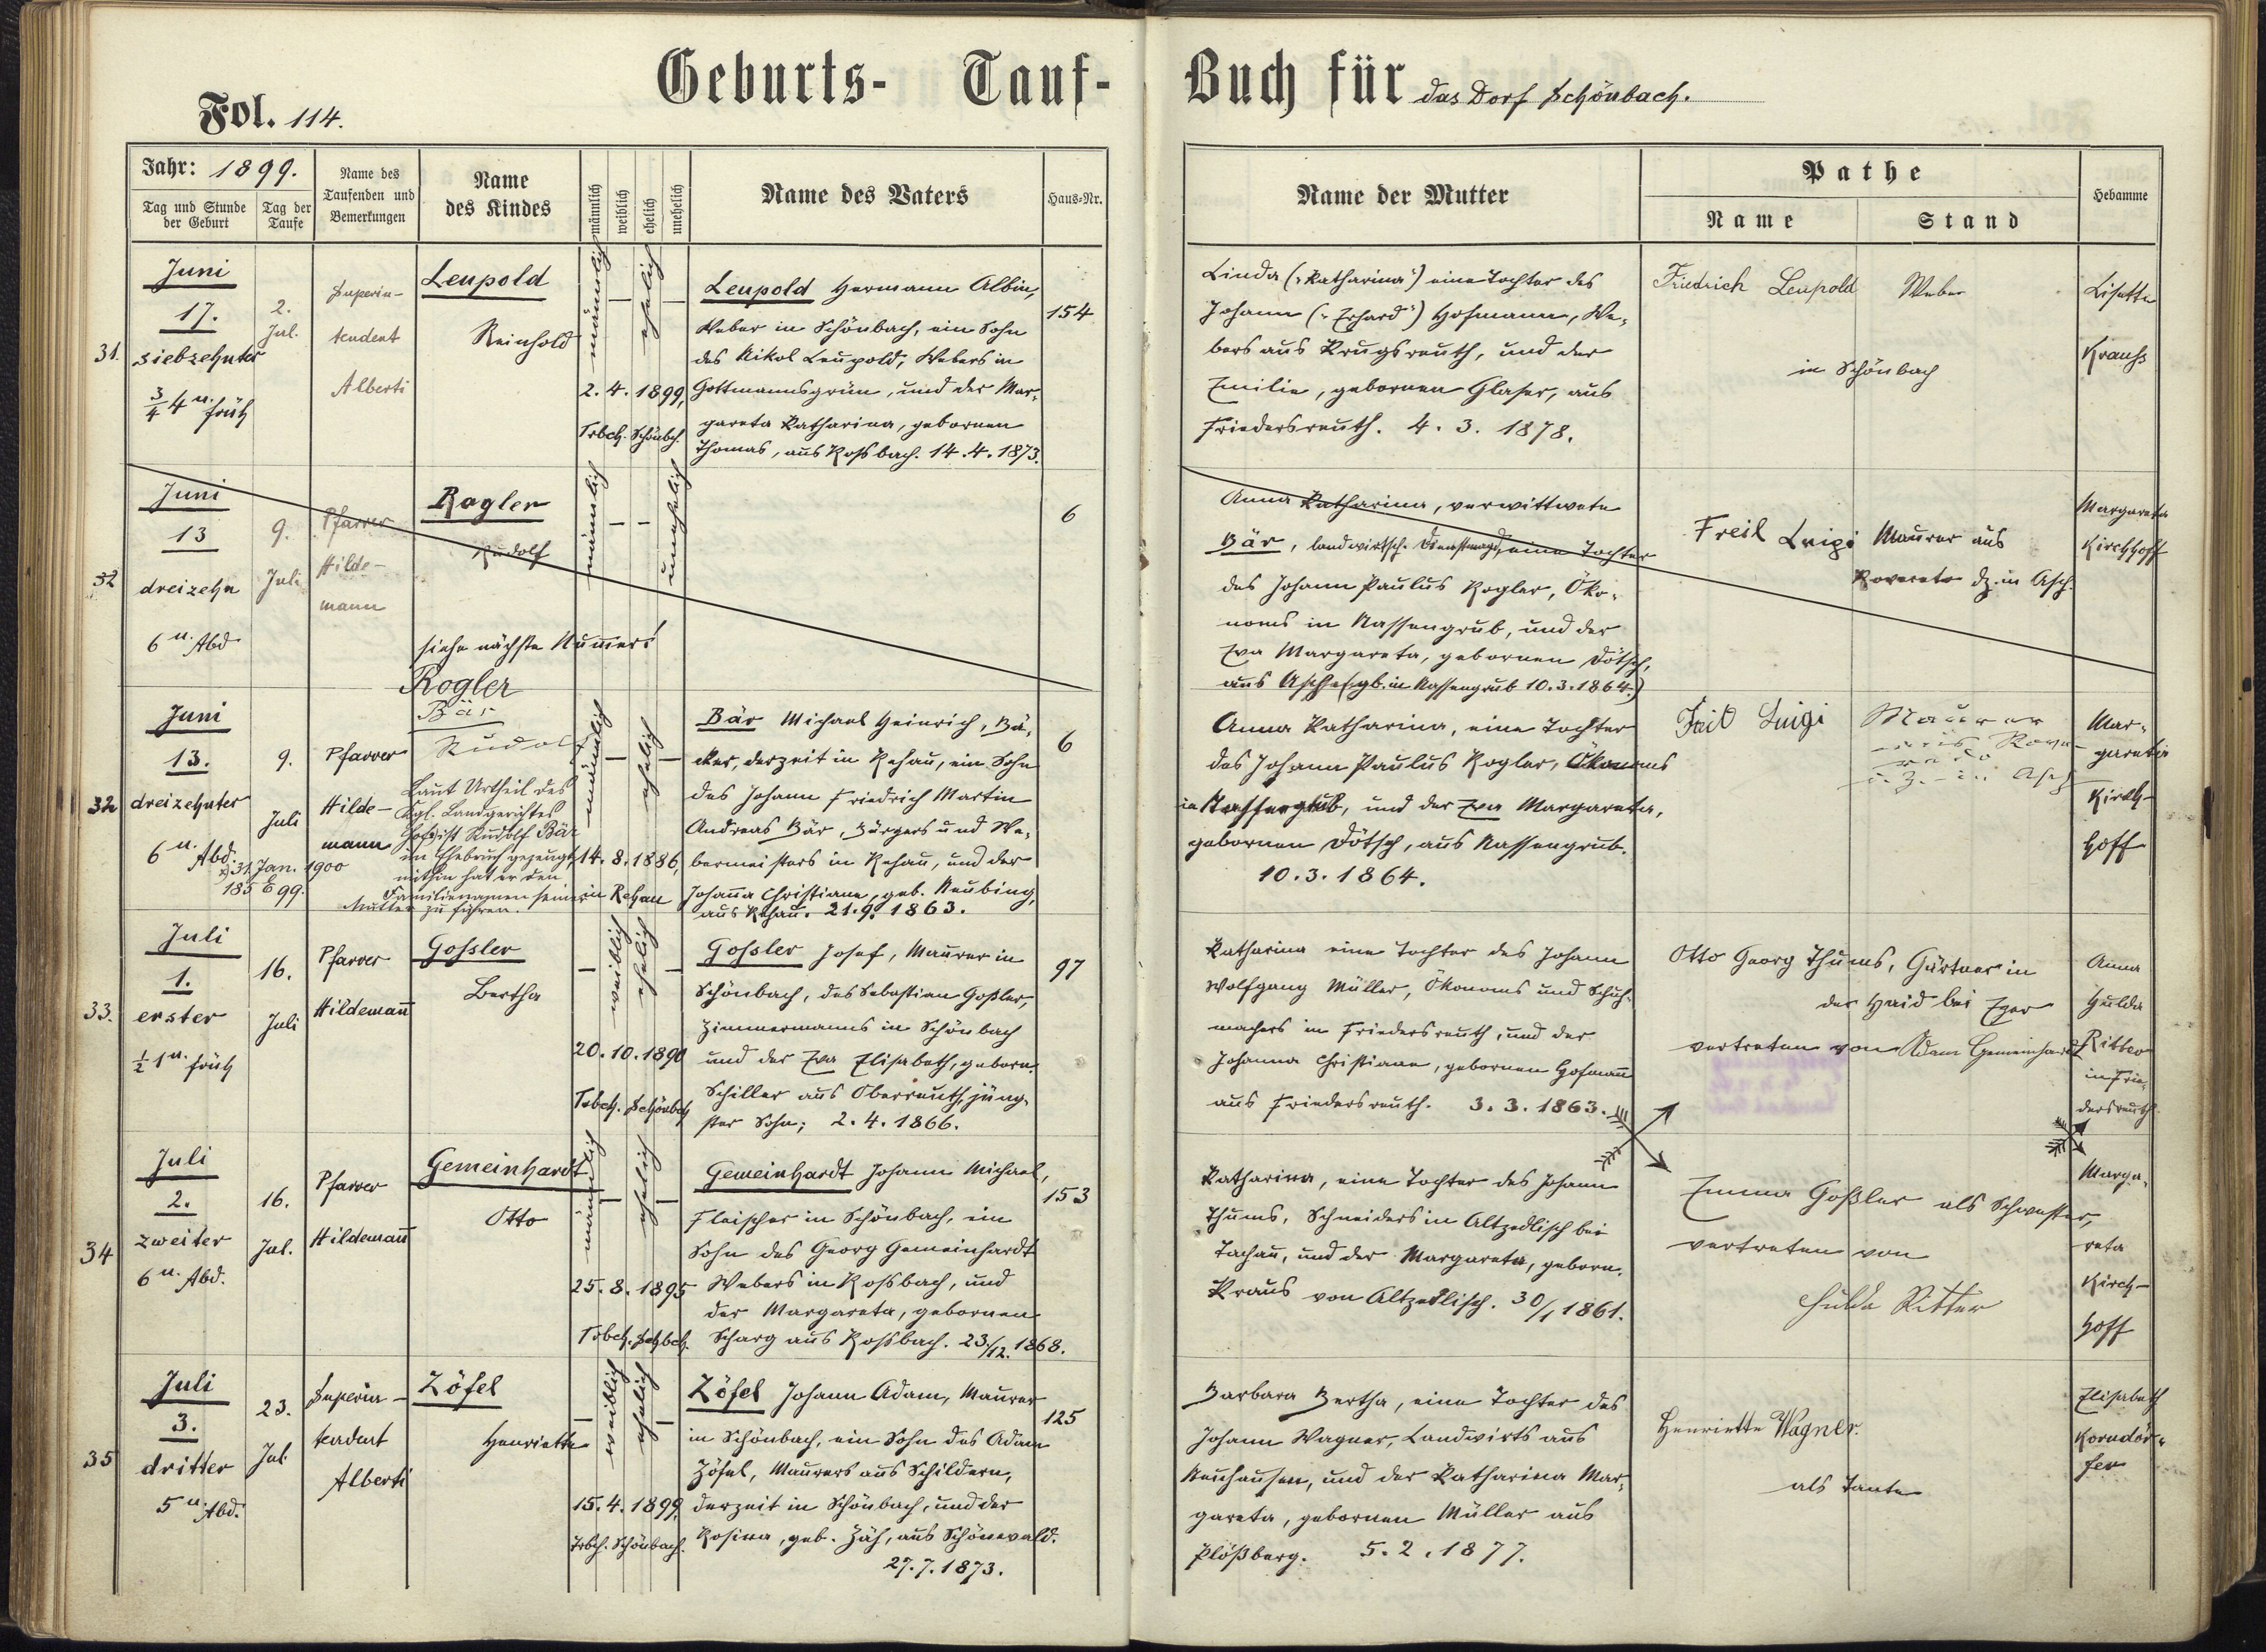 Geburts- Tauf-
Buch für das Dorf Schönbach.
Fol. 114.
Jahr: 1899.
Tag und Stunde der Geburt
Tag der Taufe
Name des Taufenden und Bemerkungen
Name des Kindes
männlich
weiblich
ehelich
unehelich
Name des Vaters
Haus-Nr.
Name der Mutter
Pathe
Name
Stand
Hebamme
31.
Juni
17.
siebzehnter
3/4 4 u. früh
2.
Jul.
Superin-
tendent
Alberti
Leupold
Reinhold
männlich
—
ehelich
—
2. 4. 1899,
Trbch. Schönbch.
Leupold Hermann Albin,
Weber in Schönbach, ein Sohn
des Nikol Leupold, Webers in
Gottmannsgrün, und der Mar-
gareta Katharina, gebornen
Thomas, aus Roßbach. 14.4.1873.
154
Linda ("Katharina") eine Tochter des
Johann ("Erhard") Hofmann, We-
bers aus Krugsreuth, und der
Emilie, gebornen Glaser, aus
Friedersreuth. 4. 3. 1878.
Friedrich Leupold
Weber
in Schönbach
Lisette
Krauß
32
Juni
13
dreizehn
6 u. Abd
9.
Juli
Pfarrer
Hilde-
mann
Rogler
Rudolf
siehe nächste Numer!
männlich
—
—
unehelich
6
Anna Katharina, verwittwete
Bär, landwirtsch. Dienstmagd, eine Tochter
des Johann Paulus Rogler, Öko-
noms in Nassengrub, und der
Eva Margareta, gebornen Dötsch,
aus Asch (gb. in Nassengrub 10.3.1864)
Freil Luigi
Maurer aus
Rovereto dz. in Asch.
Margareta
Kirchhoff
32
Juni
13.
dreizehnter
6 u. Abd.
9.
Juli
Pfarrer
Hilde-
mann
Rogler
Bär
Rudolf
Laut Urtheil des
Kgl. Landgerichtes
Hof ist Rudolf Bär
im Ehebruch gezeugt,
mithin hat er den
Familiennamen seiner
Mutter zu führen.
31. Jan. 1900
185 E 99.
männlich
—
ehelich
—
14. 8. 1886,
in Rehau
Bär Michael Heinrich, Bä-
cker, derzeit in Rehau, ein Sohn
des Johann Friedrich Martin
Andreas Bär, Bürgers und We-
bermeisters in Rehau, und der
Johanna Christiane, geb. Neubing,
aus Rehau. 21.9.1863.
6
Anna Katharina, eine Tochter
des Johann Paulus Rogler, Ökonoms
in Nassengrub, und der Eva Margareta,
gebornen Dötsch, aus Nassengrub.
10. 3. 1864.
Luigi
Maurer
d. Z. in Asch
Mar-
gareta
Kirch-
hoff
33.
Juli
1.
erster
1/2 1 u. früh
16.
Juli
Pfarrer
Hildemann
Gossler
Bertha
—
weiblich
ehelich
—
20. 10. 1890
Trbch. Schönbch
Gossler Josef, Maurer in
Schönbach, des Sebastian Goßler,
Zimmermanns in Schönbach
und der Eva Elisabeth, geborn.
Schiller aus Oberreuth, jüng-
ster Sohn; 2. 4. 1866.
97
Katharina eine Tochter des Johann
Wolfgang Müller, Ökonoms und Schuh-
machers in Friedersreuth, und der
Johanna Christiane, gebornen Hofmann
aus Friedersreuth. 3. 3. 1863.
Otto Georg Thums, Gärtner in
der Haid bei Eger
vertreten von Adam Gemeinhardt
Anna
Hulda
Ritter
in Frie-
dersreuth
34
Juli
2.
zweiter
6 u. Abd.
16.
Jul.
Pfarrer
Hildemann
Gemeinhardt
Otto
männlich
—
ehelich
—
25. 8. 1895
Trbch. Schbch.
Gemeinhardt Johann Michael,
Fleischer in Schönbach, ein
Sohn des Georg Gemeinhardt
Webers in Roßbach, und
der Margareta, gebornen
Scharg aus Roßbach. 23/12. 1868.
153
Katharina, eine Tochter des Johann
Thums, Schneiders in Altzedlisch bei
Tachau, und der Margareta, geborn.
Kraus von Altzedlisch. 30/1 1861.
Emma Goßler als Schwester,
vertreten von
Hulda Ritter
Marga-
reta
Kirch-
hoff
35
Juli
3.
dritter
5 u. Abd.
23.
Jul.
Superin-
tendent
Alberti
Zöfel
Henriette
—
weiblich
ehelich
—
15. 4. 1899,
Trbch. Schönbach.
Zöfel Johann Adam, Maurer
in Schönbach, ein Sohn des Adam
Zöfel, Maurers aus Schildern,
derzeit in Schönbach, und der
Rosina, geb. Zäh, aus Schönwald.
27. 7. 1873.
125
Barbara Bertha, eine Tochter des
Johann Wagner, Landwirts aus
Neuhausen, und der Katharina Mar-
gareta, gebornen Müller aus
Plößberg. 5. 2. 1877.
Henriette Wagner.
als Tante
Elisabeth
Korndör-
fer